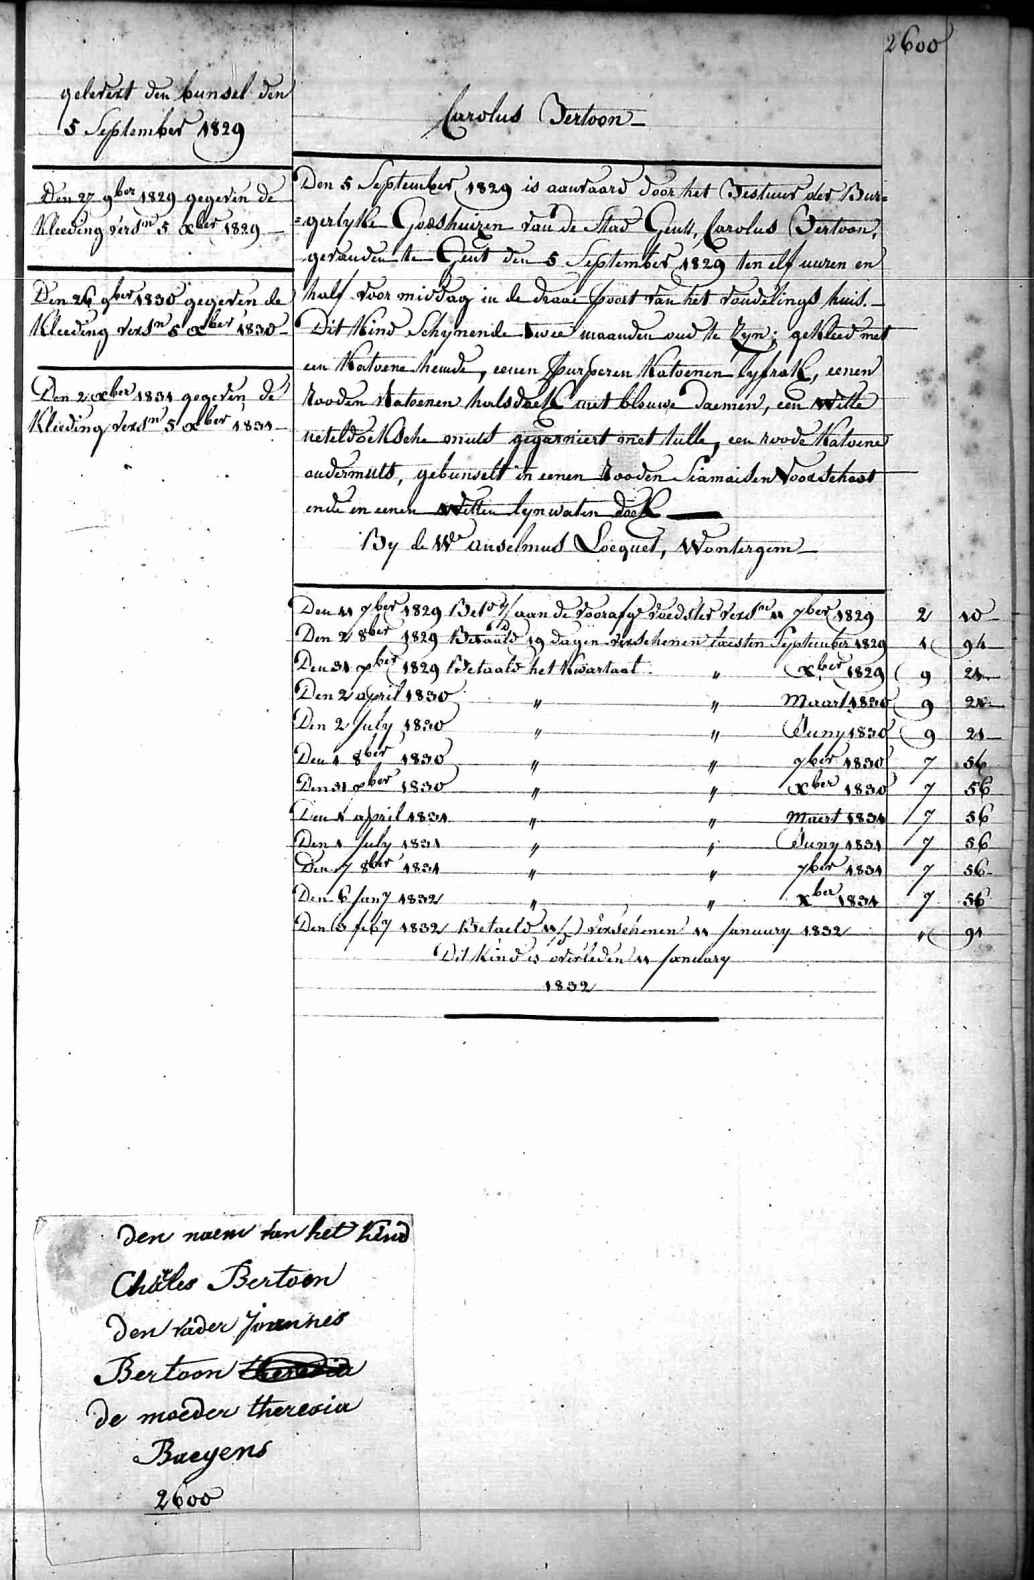 2600
gelevert den bunsel den
5 September 1829
Den 27 9ber 1829 gegeven de
Kleeding versn 5 Xber 1829
Den 26 9ber 1830 gegeven de
Kleeding versn 5 Xber 1830
Den 2 Xber 1831 gegeven de
Kleeding versn 5 Xber 1831
Carolus Bertoon
Den 5 September 1829 is aanvaard door het Bestuur der Bur=
=gerlyke Godshuizen van de Stad Gent, Carolus Bertoon,
gevanden te Gent den 5 September 1829 ten elf uuren en
half voor middag in de draai poort van het vondelings huis.
Dit Kind Schynende twee maanden oud te Zyn; gekleed met
een Katoene hemde, eenen purperen Katoenen lyfrok, eenen
Rooden Katoenen halsdoek met blauwe daemen, een Witte
neteldoeksche muts gegarniert met tulle, een roode Katoene
ondermuts, gebunselt in eenen Rooden Siamoisen Voorschoot
ende en eenen Witten lynwaten doek
By de We Anselmus Locquet, Wontergem
Den 11 7ber 1829 aan de voorafge voedster versn 11 7ber 1829 2 10
Den 2 8ber 1829 Betaald 19 dagen verschenen laesten September 1829 1 94
Den 31 Xber 1829 Betaald het Kwartaal " Xber 1829 9 21
Den 2 april 1830 " " Maart 1830 9 21
Den 2 July 1830 " " Juny 1830 9 21
Den 1 8ber 1830 " " 7ber 1830 7 56
Den 31 Xber 1830 " " Xber 1830 7 56
Den 1 april 1831 " " Maert 1831 7 56
Den 1 July 1831 " " Juny 1831 7 56
Den 7 8ber 1831 " " 7ber 1831 7 56
Den 6 Jany 1832 " " Xber 1831 7 56
Den 3 feby 1832 Betaeld 11/d verschenen 11 January 1832 " 91
Dit Kind is overleden 11 January
1832
den naem van het Kind
Charles Bertoon
den vader Joannes
Bertoon
de moeder theresia
Baeyens
2600